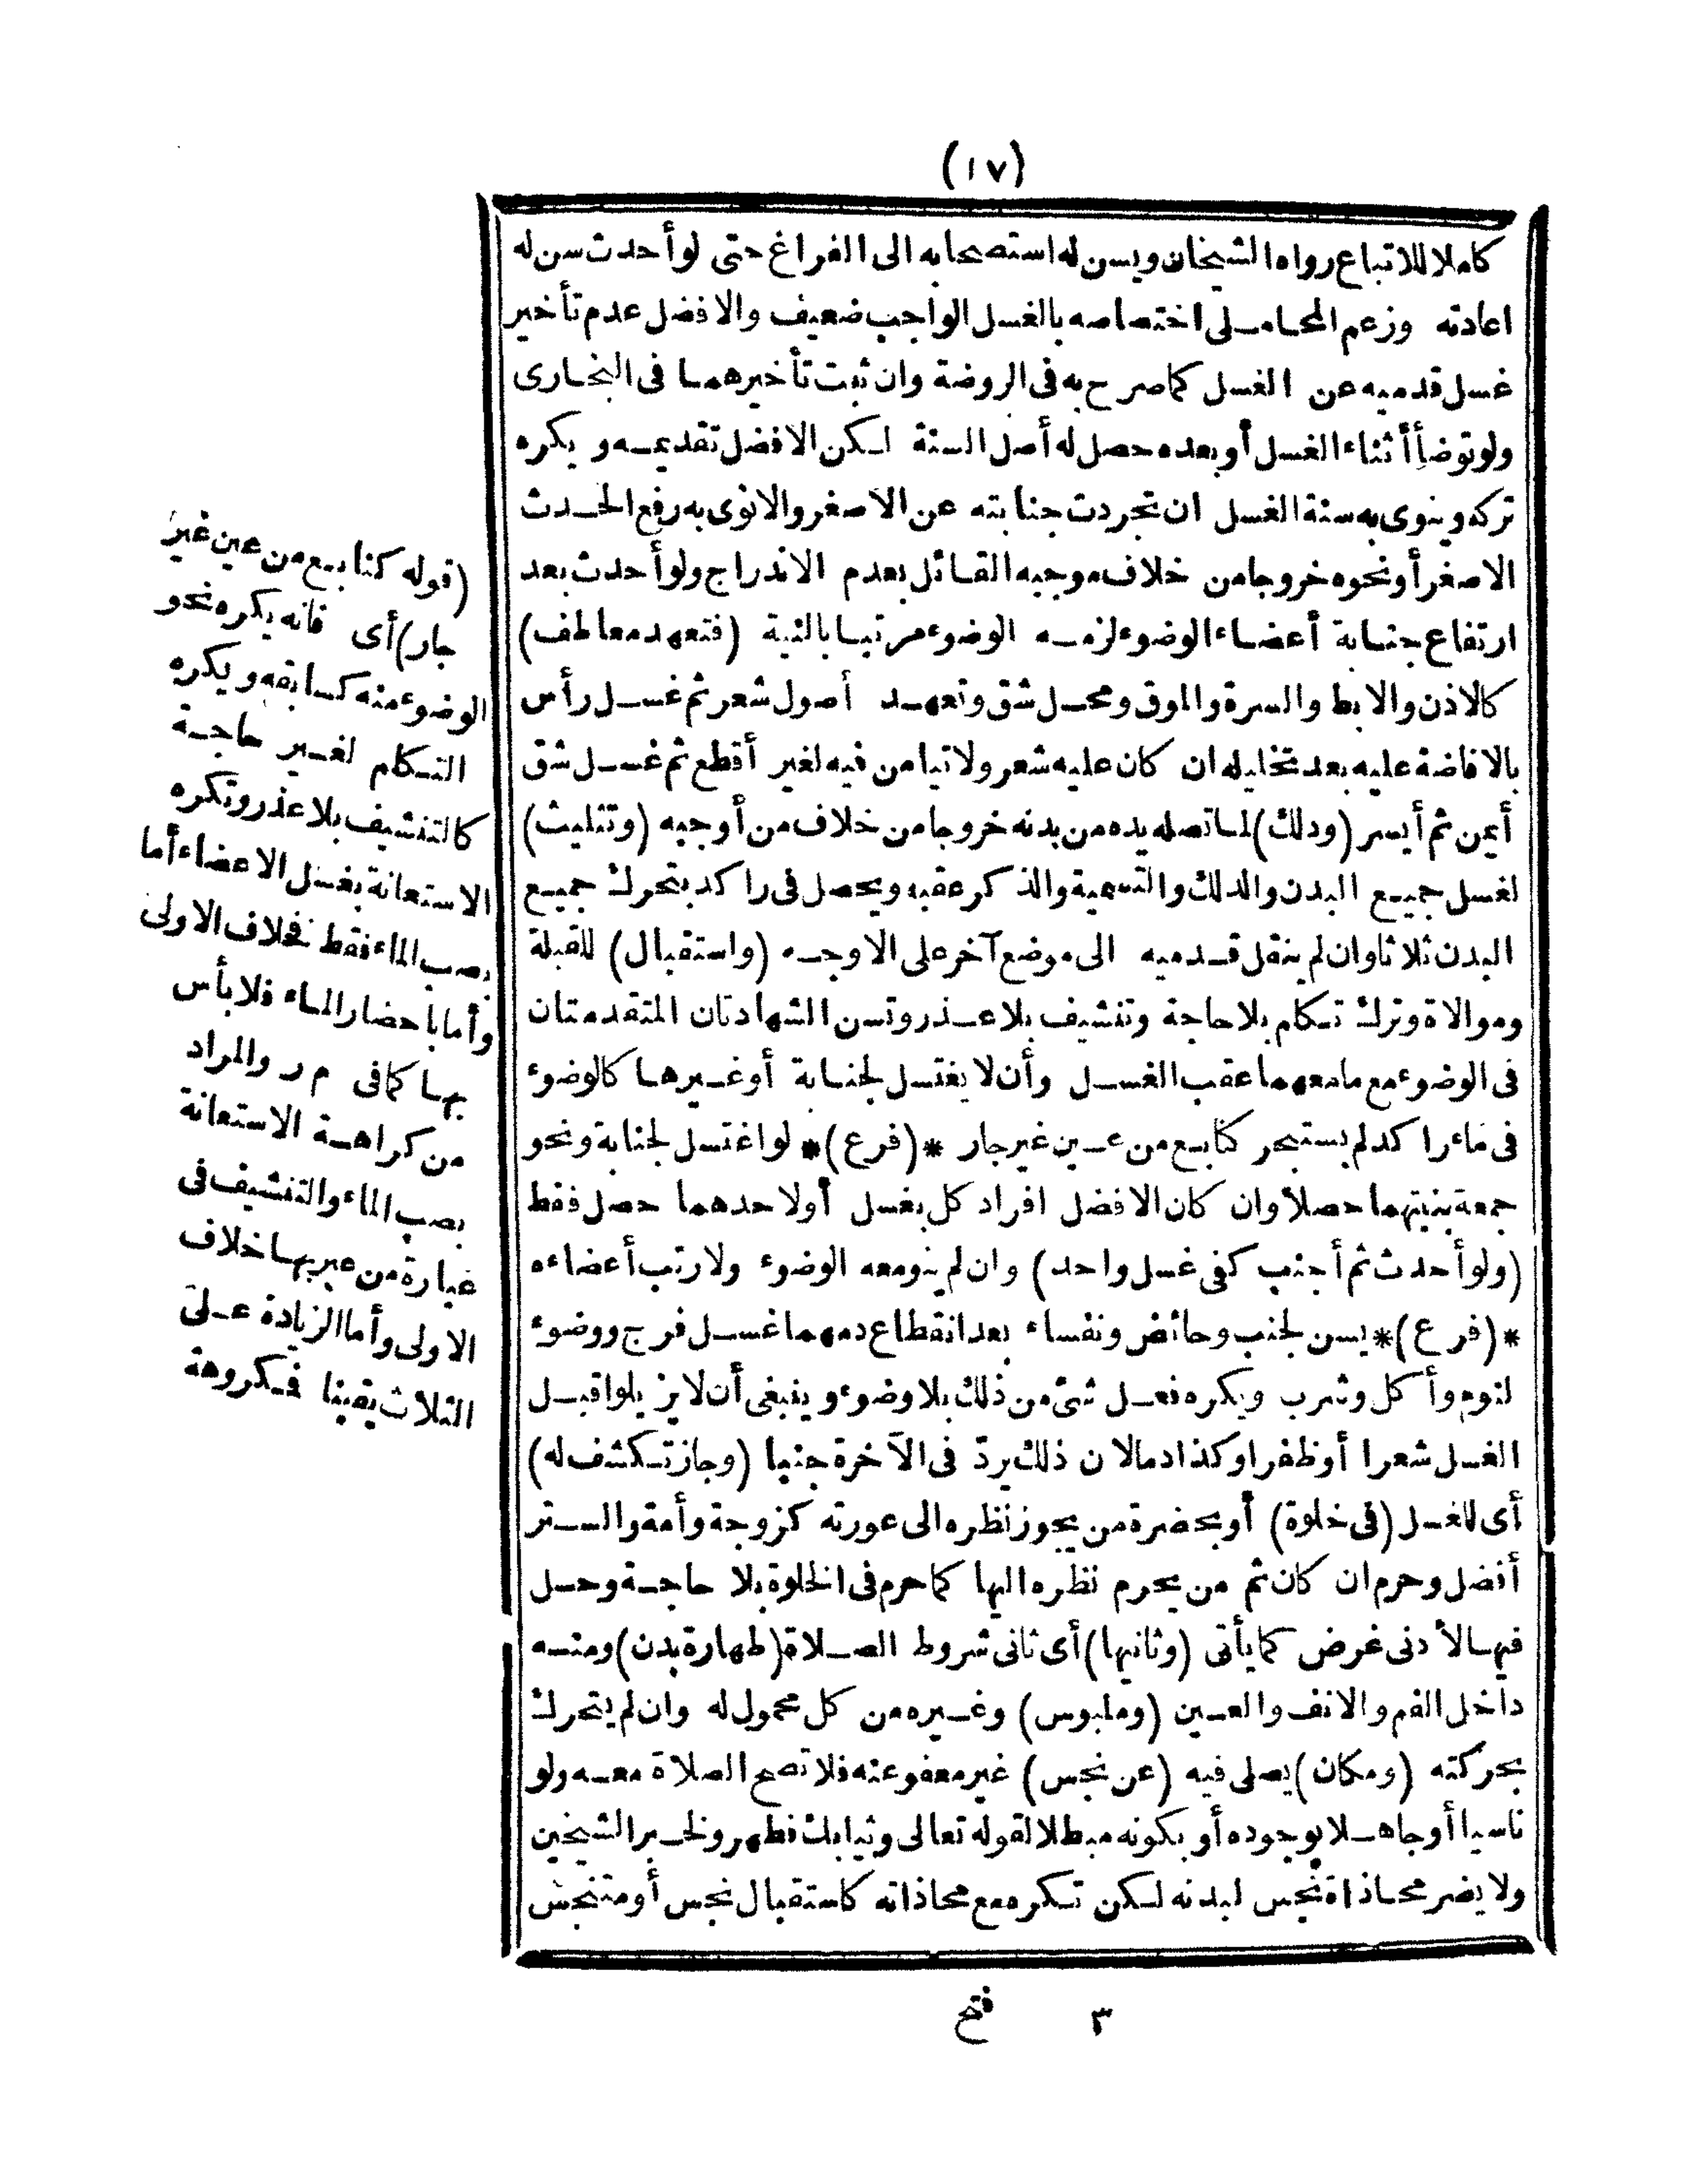 (١٧)
كاملا للاتباع رواه الشيخان ويسن له استصحابه الى الفراغ حتى لو أحدث سن له
اعادته وزعم المحاملى اختصاصه بالغسل الواجب ضعيف والافضل عدم تأخير
غسل قدميه عن الغسل كما صرح به فى الروضة وان ثبت تأخيرهما فى البخارى
ولو توضأ أثناء الغسل أو بعده حصل له أصل السنة لكن الافضل تقديمه و يكره
تركه وينوى به سنة الغسل ان تجردت جنابته عن الاصغر والا نوى به رفع الحدث
الاصغر أو نحوه خروجا من خلاف موجبه القائل بعدم الاندراج ولو أحدث بعد
ارتفاع جنابة أعضاء الوضوء لزمه الوضوء مرتبا بالنية (فتعهد معاطف)
كالاذن والابط والسرة والموق ومحل شق وتعهد أصول شعر ثم غسل رأس
بالافاضة عليه بعد تخليله ان كان عليه شعر ولا تيامن فيه لغير أقطع ثم غسل شق
أيمن ثم أيسر (ودلك) لما تصله يده من بدنه خروجا من خلاف من أوجبه (وتثليث)
لغسل جميع البدن والدلك والتسمية والذكر عقبه ويحصل فى راكد بتحرك جميع
البدن ثلاثا وان لم ينقل قدميه الى موضع آخر على الاوجه (واستقبال) للقبلة
وموالاة وترك تكلم بلا حاجة وتنشيف بلا عذر وتسن الشهادتان المتقدمتان
فى الوضوء مع ما معهما عقب الغسل وأن لا يغتسل لجنابة أو غيرها كالوضوء
فى ماء راكد لم يستبحر كنابع من عين غير جار *(فرع)* لو اغتسل لجنابة ونحو
جمعة بنيتهما حصلا وان كان الافضل افراد كل بغسل أو لاحدهما حصل فقط
(ولو أحدث ثم أجنب كفى غسل واحد) وان لم ينو معه الوضوء ولا رتب أعضاءه
*(فرع)* يسن لجنب وحائض ونفساء بعد انقطاع دمهما غسل فرج ووضوء
لنوم وأكل وشرب ويكره فعل شئ من ذلك بلا وضوء و ينبغى أن لا يزيلوا قبل
الغسل شعرا أو ظفرا وكذا دما لان ذلك يردّ فى الآخرة جنبا (وجاز تكشف له)
أى للغسل (فى خلوة) أو بحضرة من يجوز نظره الى عورته كزوجة وأمة والستر
أفضل وحرم ان كان ثم من يحرم نظره اليها كما حرم فى الخلوة بلا حاجة وحل
فيها لأدنى غرض كما يأتى (وثانيها) أى ثانى شروط الصلاة (طهارة بدن) ومنه
داخل الفم والانف والعين (وملبوس) وغيره من كل محمول له وان لم يتحرك
بحركته (ومكان) يصلى فيه (عن نجس) غير معفو عنه فلا تصح الصلاة معه ولو
ناسيا أو جاهلا بوجوده أو بكونه مبطلا لقوله تعالى وثيابك فطهر ولخبر الشيخين
ولا يضر محاذاة نجس لبدنه لكن تكره مع محاذاته كاستقبال نجس أو متنجس
(قوله كنابع من عين غير
جار) أى فانه يكره نحو
الوضوء منه كسابقه ويكره
التكلم لغير حاجة
كالتنشيف بلا عذر وتكره
الاستعانة بغسل الاعضاء أما
بصب الماء فقط فخلاف الاولى
وأما باحضار الماء فلا بأس
بها كما فى م ر والمراد
من كراهة الاستعانة
بصب الماء والتنشيف فى
عبارة من عبر بها خلاف
الاولى وأما الزيادة على
الثلاث يقينا فمكروهة
٣ فتح